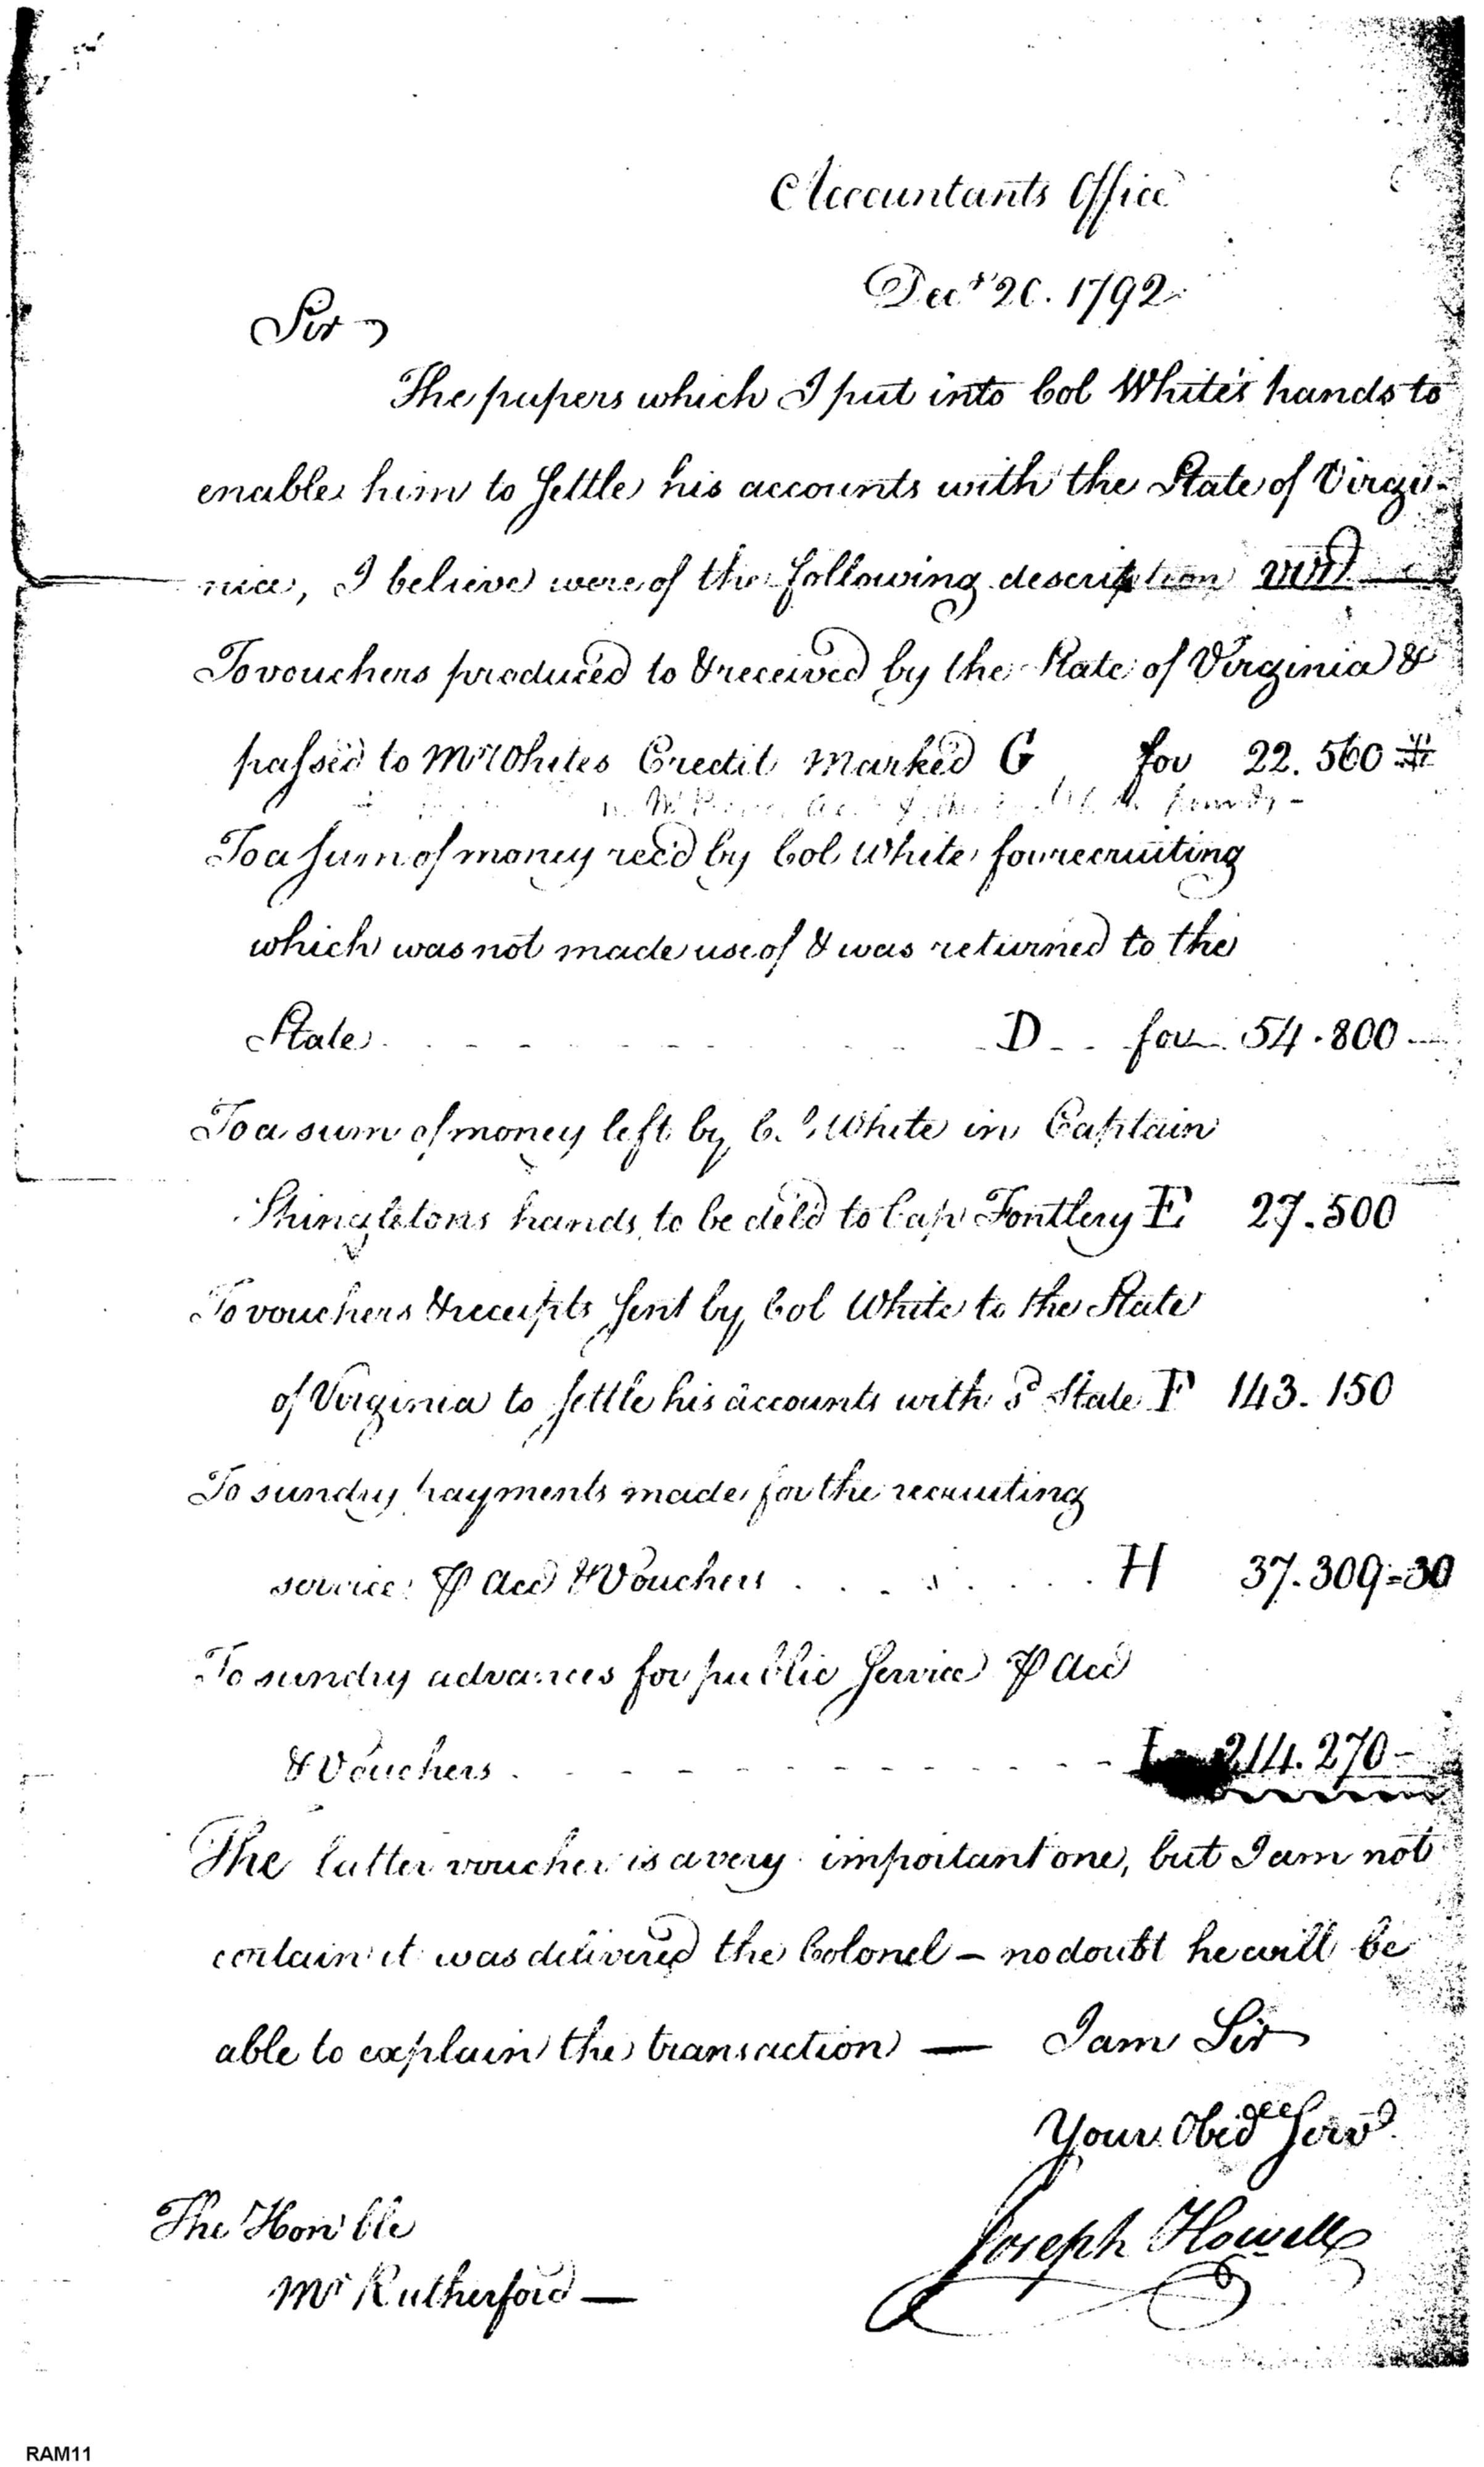 Accountants Office
Decr 20. 1792
Sir,
The papers which I put into Col White's hands to
enable him to settle his accounts with the State of Virgi-
nia, I believe were of the following description vizt
To vouchers produced to & received by the State of Virginia &
passed to Mr Whites Credit Marked G for 22.560
To a sum of money rec'd by Col White for recruiting
which was not made use of & was returned to the
State . . . . D . . for 54.800
To a sum of money left by Col White in Captain
Shingletons hands to be del'd to Cap Fontlery E 27.500
To vouchers & receipts sent by Col White to the State
of Virginia to settle his accounts with sd State F 143.150
To sundry payments made for the recruiting
service ⅌ Acct & Vouchers . . . . H 37.309=30
To sundry advances for public Service ⅌ Acct
& Vouchers . - - - - - - I 214.270-
The latter voucher is a very important one, but I am not
certain it was delivered the Colonel – no doubt he will be
able to explain the transaction — I am Sir
Your Obed Serv
Joseph Howell
The Hon'ble
Mr Rutherford —
RAM11